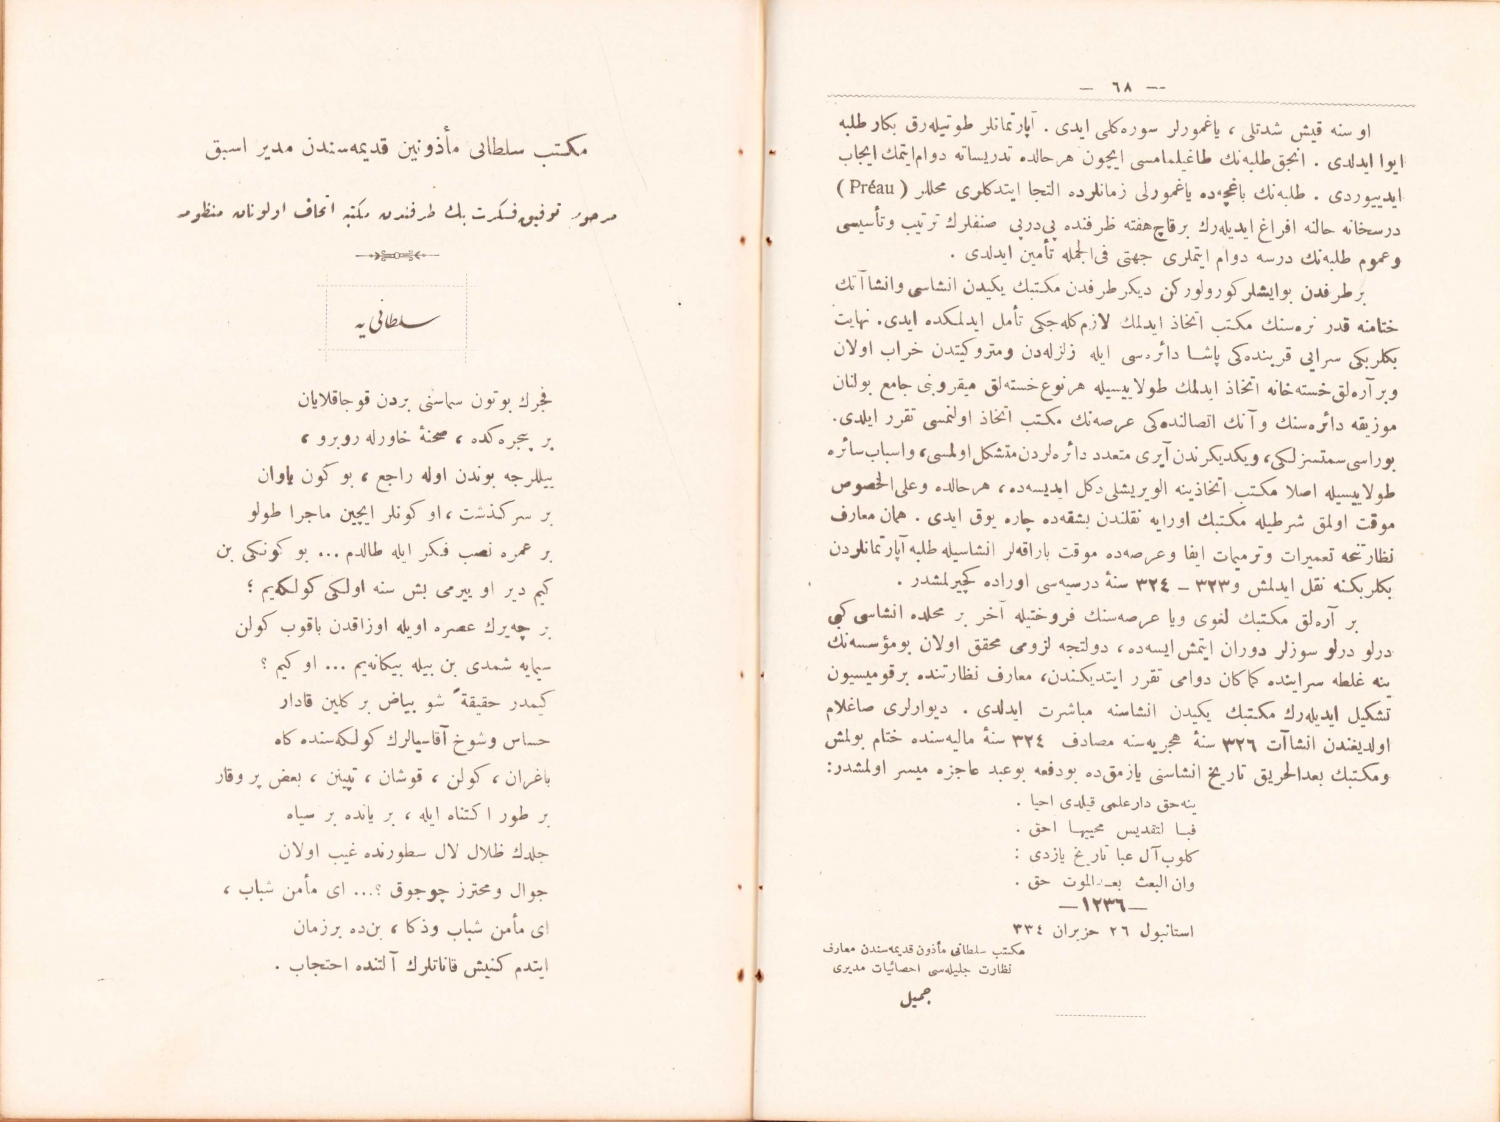 — ٦٨ —
او سنه قیش شدتلی ، یاغمورلر سوره‌كلی ایدی . آپارتمانلر طوتیله‌رق بكار طلبه
ایوا ایدلدی . انجق طلبه‌نك طاغیلمامسی ایچون هر حالده تدریساته دوام ایتمك ایجاب
ایدییوردی . طلبه‌نك باغچه‌ده یاغمورلی زمانلرده التجا ایتدكلری محللر ( Préau )
درسخانه حالنه افراغ ایدیله‌رك برقاچ هفته ظرفنده پی‌درپی صنفلرك ترتیب وتأسیسی
وعموم طلبه‌نك درسه دوام ایتملری جهتی فی‌الجمله تأمین ایدلدی .
برطرفدن بو ایشلر كورولوركن دیكر طرفدن مكتبك یكیدن انشاسی وانشاآتك
ختامنه قدر نره‌سنك مكتب اتخاذ ایدلمك لازم‌كله‌جكی تأمل ایدلمكده ایدی. نهایت
بكلربكی سرایی قربنده‌كی پاشا دائره‌سی ایله زلزله‌دن ومتروكیتدن خراب اولان
وبر آره‌لق خسته‌خانه اتخاذ ایدلمك طولاییسیله هرنوع خسته‌لق میقروبنی جامع بولنان
موزیقه دائره‌سنك وآنك اتصالنده‌كی عرصه‌نك مكتب اتخاذ اولنمسی تقرر ایلدی.
بوراسی سمتسزلكی، ویكدیكرندن آیری متعدد دائره‌لردن متشكل اولمسی، واسباب سائره
طولاییسیله اصلا مكتب اتخاذینه الویریشلی دكل ایدیسه‌ده، هرحالده وعلی‌الخصوص
موقت اولمق شرطیله مكتبك اورایه نقلندن بشقه‌ده چاره یوق ایدی . همان معارف
نظارتنجه تعمیرات وترمیمات ایفا وعرصه‌ده موقت باراقه‌لر انشاسیله طلبه آپارتمانلردن
بكلربكنه نقل ایدلمش و٣٢٣ – ٣٢٤ سنهٔ درسیه‌سی اوراده كچیرلمشدر .
بر آره‌لق مكتبك لغوی ویا عرصه‌سنك فروختیله آخر بر محلده انشاسی كبی
درلو درلو سوزلر دوران ایتمش ایسه‌ده، دولتجه لزومی محقق اولان بومؤسسه‌نك
ینه غلطه سراینده كماكان دوامی تقرر ایتدیكندن، معارف نظارتنده برقومیسیون
تشكیل ایدیله‌رك مكتبك یكیدن انشاسنه مباشرت ایدلدی . دیوارلری صاغلام
اولدیغندن انشاآت ٣٢٦ سنهٔ هجریه‌سنه مصادف ٣٢٤ سنهٔ مالیه‌سنده ختام بولمش
ومكتبك بعدالحریق تاریخ انشاسنی یازمق‌ده بودفعه بوعبد عاجزه میسر اولمشدر:
ینه حق دار علمی قیلدی احیا .
فیا لتقدیس محییها احق .
كلوب آل عبا تاریخ یازدی :
وان البعث بعد الموت حق .
— ١٢٣٦ —
استانبول ٢٦ حزیران ٣٣٤
مكتب سلطانی مأذون قدیمه‌سندن معارف
نظارت جلیله‌سی احصائیات مدیری
جمیل
مكتب سلطانی مأذونین قدیمه‌سندن مدیر اسبق
مرحوم توفیق فكرت بك طرفندن مكتبه اتحاف اولونان منظومه
سلطانی‌یه
فجرك بوتون سماسنی بردن قوجاقلایان
بر پنجره‌كده ، صحنهٔ خاورله روبرو ،
ییللرجه بوندن اوله راجع ، بو كون یاوان
بر سركذشت ، او كونلر ایچین ماجرا طولو
بر عمره نصب فكر ایله طالدم ... بو كونكی بن
كیم دیر او ییرمی بش سنه اولكی كولكه‌یم ؛
بر چه‌یرك عصره اویله اوزاقدن باقوب كولن
سیمایه شمدی بن بیله بیكانه‌یم ... او كیم ؟
كیمدر حقیقةً شو بیاض بر كلین قادار
حساس وشوخ آقاسیالرك كولكه‌سنده كاه
باغران ، كولن ، قوشان ، تپینن ، بعض پر وقار
بر طور اكتناه ایله ، بر یانده بر سیاه
جلدك ظلال لال سطورنده غیب اولان
جوال ومحترز چوجوق ؟... ای مأمن شباب ،
ای مأمن شباب وذكا ، بن‌ده برزمان
ایتدم كنیش قاناتلرك آلتنده احتجاب .